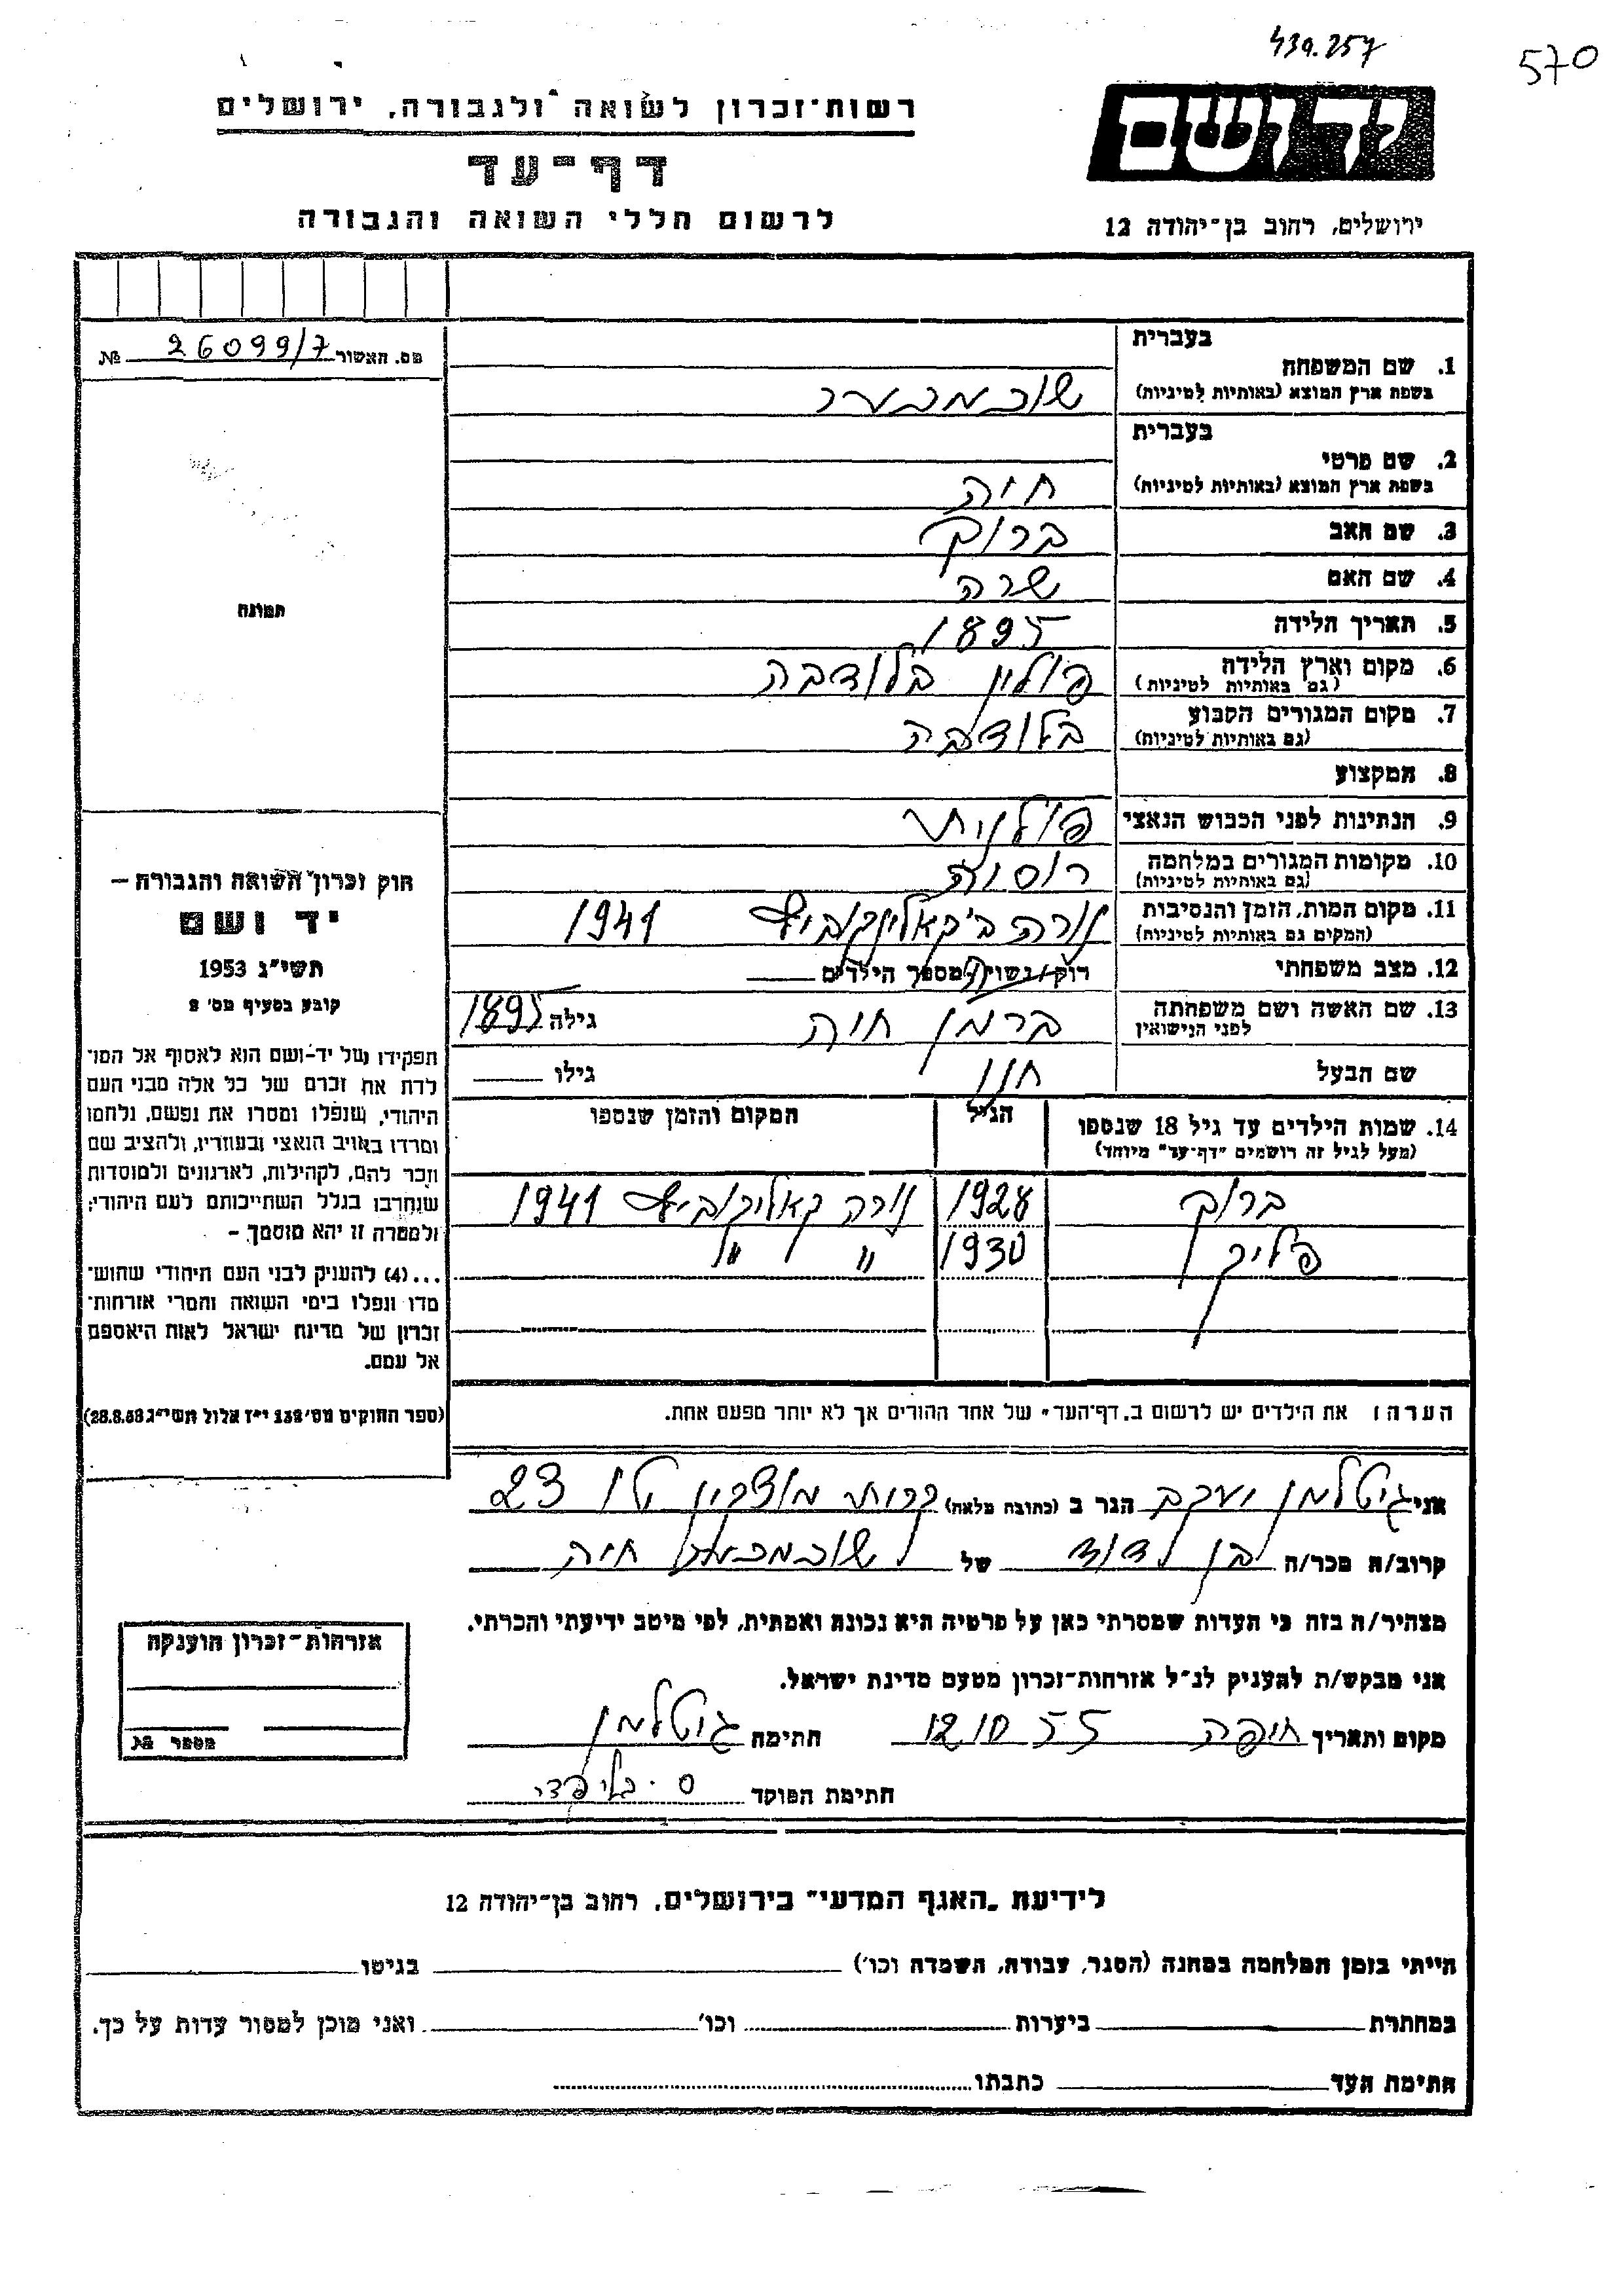 439.257
570
רשות-זכרון לשואה ולגבורה, ירושלים
יד ושם
דף-עד
לרשום חללי השואה והגבורה
ירושלים, רחוב בן-יהודה 12
מס. האשור 26099/7 №
בעברית
1. שם המשפחה
בשפת ארץ המוצא (באותיות לטיניות)
בעברית
2. שם פרטי
בשפת ארץ המוצא (באותיות לטיניות) חיה
3. שם האב ברוך
4. שם האם שרה
5. תאריך הלידה 1895
6. מקום וארץ הלידה פולין
(גם באותיות לטיניות)
7. מקום המגורים הקבוע
(גם באותיות לטיניות)
8. המקצוע
9. הנתינות לפני הכבוש הנאצי פולנית
10. מקומות המגורים במלחמה רוסיה
(גם באותיות לטיניות)
11. מקום המות, הזמן והנסיבות נורה 1941
(המקום גם באותיות לטיניות)
12. מצב משפחתי רוק/נשוי/מספר הילדים
13. שם האשה ושם משפחתה ברמן חיה גילה 1895
לפני הנישואין
שם הבעל גילו
14. שמות הילדים עד גיל 18 שנספו הגיל המקום והזמן שנספו
(מעל לגיל זה רושמים "דף-עד" מיוחד)
ברוך 1928 נורה 1941
פליק 1930 " "
הערה: את הילדים יש לרשום ב"דף-העד" של אחד ההורים אך לא יותר מפעם אחת.
תמונה
חוק זכרון השואה והגבורה –
יד ושם
תשי"ג 1953
קובע בסעיף מס' 2
תפקידו של יד-ושם הוא לאסוף אל המו-
לדת את זכרם של כל אלה מבני העם
היהודי, שנפלו ומסרו את נפשם, נלחמו
ומרדו באויב הנאצי ובעוזריו, ולהציב שם
וזכר להם, לקהילות, לארגונים ולמוסדות
שנחרבו בגלל השתייכותם לעם היהודי;
ולמטרה זו יהא מוסמך –
...(4) להעניק לבני העם היהודי שהוש-
מדו ונפלו בימי השואה והמרי אזרחות-
זכרון של מדינת ישראל לאות היאספם
אל עמם.
(ספר החוקים מס' 132 י"ז אלול תשי"ג 28.8.53)
אני גיטלמן יעקב הגר ב (כתובת מלאה) קרית מוצקין 23
קרוב/ה מכר/ה בן דוד של חיה
מצהיר/ה בזה כי העדות שמסרתי כאן על פרטיה היא נכונה ואמתית, לפי מיטב ידיעתי והכרתי.
אני מבקש/ת להעניק לנ"ל אזרחות-זכרון מטעם מדינת ישראל.
מקום ותאריך חיפה 12 10 55 חתימה גיטלמן
חתימת הפוקד
אזרחות-זכרון הוענקה
מספר №
לידיעת "האגף המדעי" בירושלים, רחוב בן-יהודה 12
הייתי בזמן המלחמה במחנה (הסגר, עבודה, השמדה וכו') בגיטו
במחתרת ביערות וכו' ואני מוכן למסור עדות על כך.
חתימת העד כתבתו